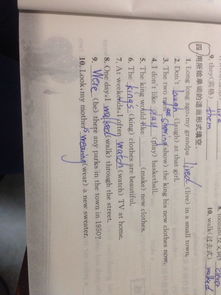 四、用所给单词的适当形式填空。
1. Long long ago, my grandpa lived (live) in a small town.
2. Don't laugh (laugh) at that girl.
3. The two men show (show) the king his new clothes now.
4. I don't like (play) basketball.
5. The king would like (make) new clothes.
6. The king's (king) clothes are beautiful.
7. At weekends, I often watch (watch) TV at home.
8. One day, I walked (walk) through the street.
9. Were (be) there any parks in the town in 1950?
10. Look, my mother (wear) a new sweater.